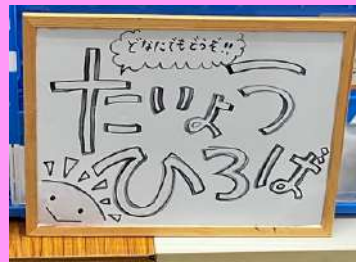 どなたでもどうぞ!!
たいよう
ひろば